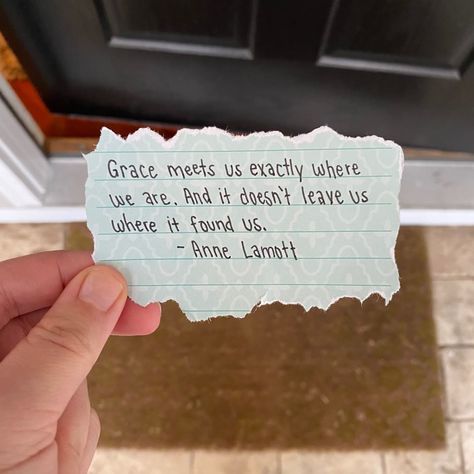 Grace meets us exactly where
we are. And it doesn't leave us
where it found us.
- Anne Lamott